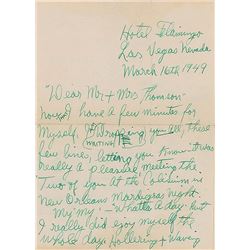 Hotel Flamingo
Las Vegas Nevada
March 16th 1949
"Dear Mr + Mrs Thomson-
now I have a few minutes for
Myself, Dropping you all these
(WRITING)
few lines, letting you know it was
really a pleasure meeting the
Two of you at the Coliseum in
New Orleans Mardigras night.
My my, - Whatta day - But
I really did enjoy myself the
whole day. Hollering + Waving